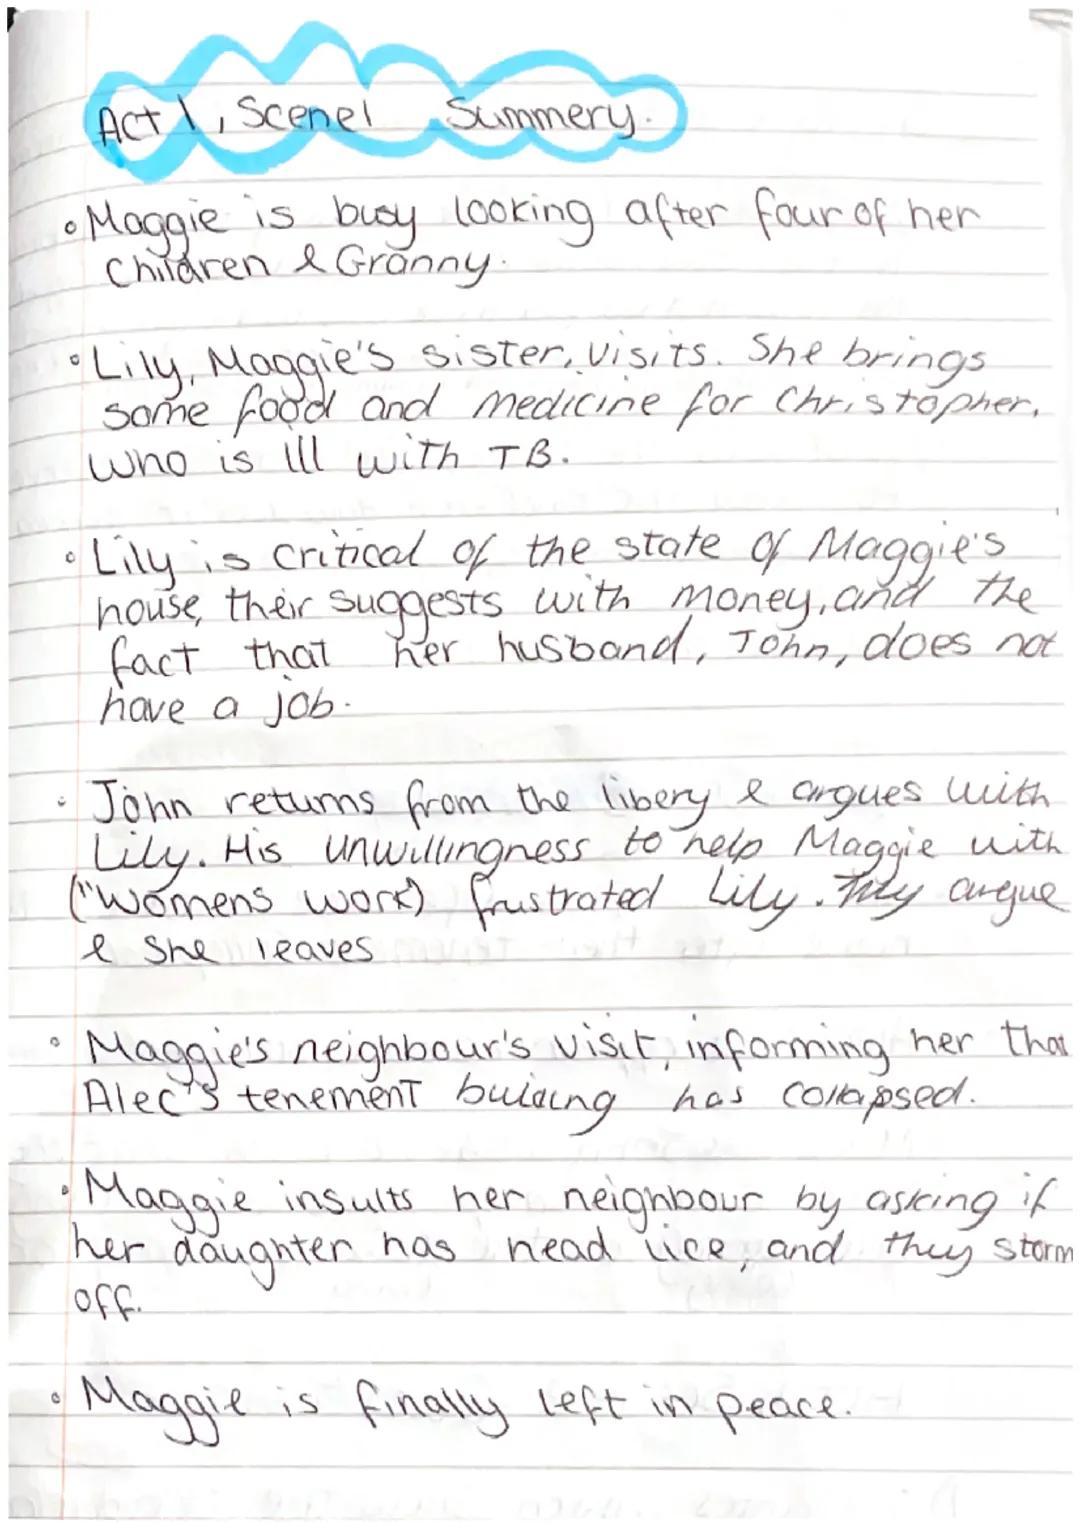 Act 1, Scene 1 Summery.
• Maggie is busy looking after four of her
children & Granny.
• Lily, Maggie's sister, visits. She brings
some food and medicine for Christopher,
who is ill with TB.
• Lily is critical of the state of Maggie's
house, their suggests with money, and the
fact that her husband, John, does not
have a job.
• John returns from the libery & argues with
Lily. His unwillingness to help Maggie with
("womens work) frustrated Lily. They argue
& she leaves
• Maggie's neighbour's visit, informing her that
Alec's tenement building has collapsed.
• Maggie insults her neighbour by asking if
her daughter has head lice, and they storm
off.
• Maggie is finally left in peace.